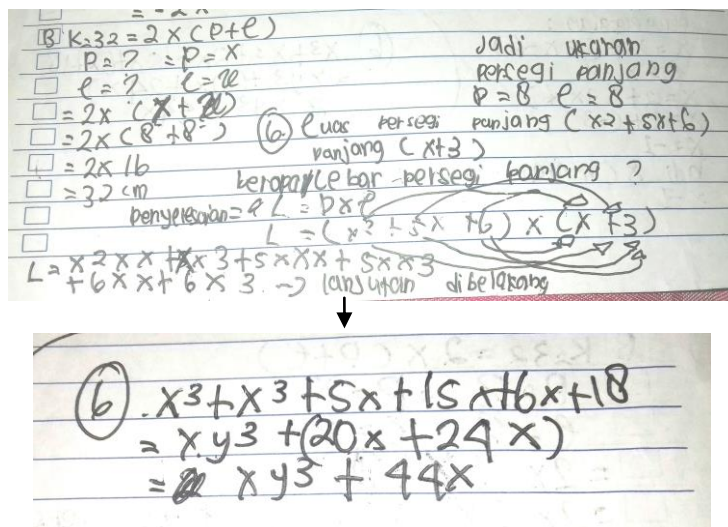 B K=32 = 2 x (p+l)
p = ? = p = x
l = ? l = x
= 2x (x + x)
= 2x (8 + 8)
= 2x 16
= 32 cm
Jadi ukuran
persegi panjang
p = 8 l = 8
6. luas persegi panjang (x2 + 5x + 6)
panjang (x+3)
berapa lebar persegi panjang ?
penyelesaian = L = p x l
L = (x² + 5x + 6) x (x + 3)
L = x2 x x + x x 3 + 5x x x + 5x x 3
+ 6 x x + 6 x 3 → lanjutan dibelakang
6. x³ + x³ + 5x + 15x + 6x + 18
= xy³ + (20x + 24x)
= xy³ + 44x